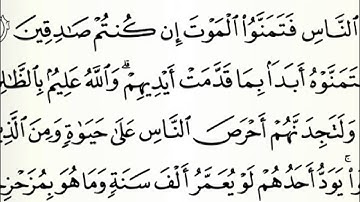 النَّاسِ فَتَمَنَّوُا۟ ٱلْمَوْتَ إِن كُنتُمْ صَٰدِقِينَ
تَمَنَّوْهُ أَبَدًۢا بِمَا قَدَّمَتْ أَيْدِيهِمْ ۗ وَٱللَّهُ عَلِيمٌۢ بِٱلظَّٰلِ
وَلَتَجِدَنَّهُمْ أَحْرَصَ ٱلنَّاسِ عَلَىٰ حَيَوٰةٍ وَمِنَ ٱلَّذِ
وا۟ ۚ يَوَدُّ أَحَدُهُمْ لَوْ يُعَمَّرُ أَلْفَ سَنَةٍ وَمَا هُوَ بِمُزَحْزِحِ